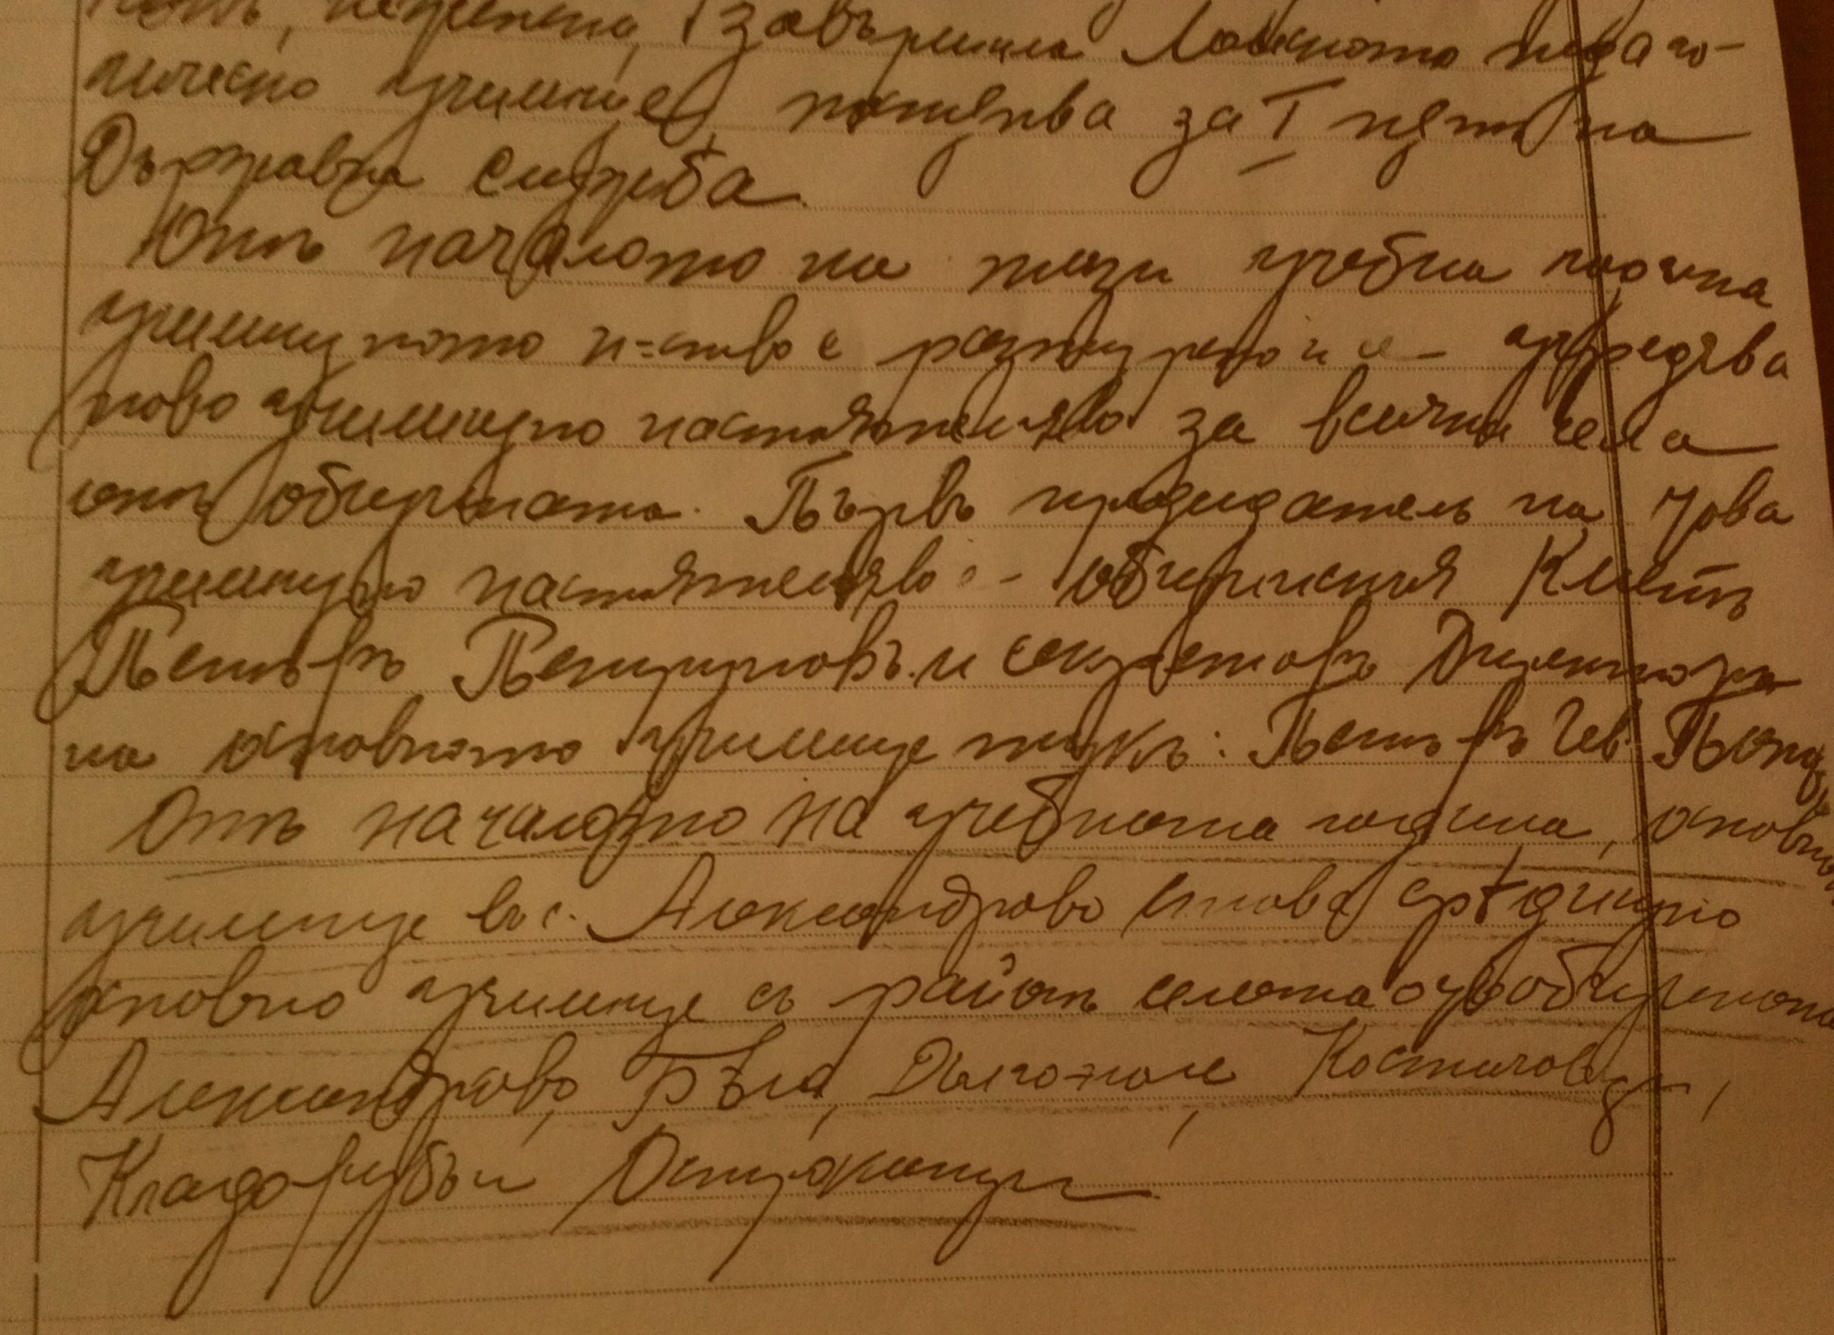 завършила Ловешкото педаго-
гическо училище, постъпва за I пѫть на
Държавна служба.
Отъ началото на тази учебна година
училищното н-ство е разтурено и се учредява
ново училищно настоятелство за всички села
отъ общината. Първъ председател на това
училищно настоятелство е - общинския Кметъ
Петъръ и секретарь Директора
на основното училище тукъ: Петъръ Чев.
Отъ началото на учебната година, основно
училище въ с. Александрово става срѣдищно
основно училище съ район селата от общината
Александрово, Бѣла, Дълго поле, Костичовци,
Кладоруб и Острокапци